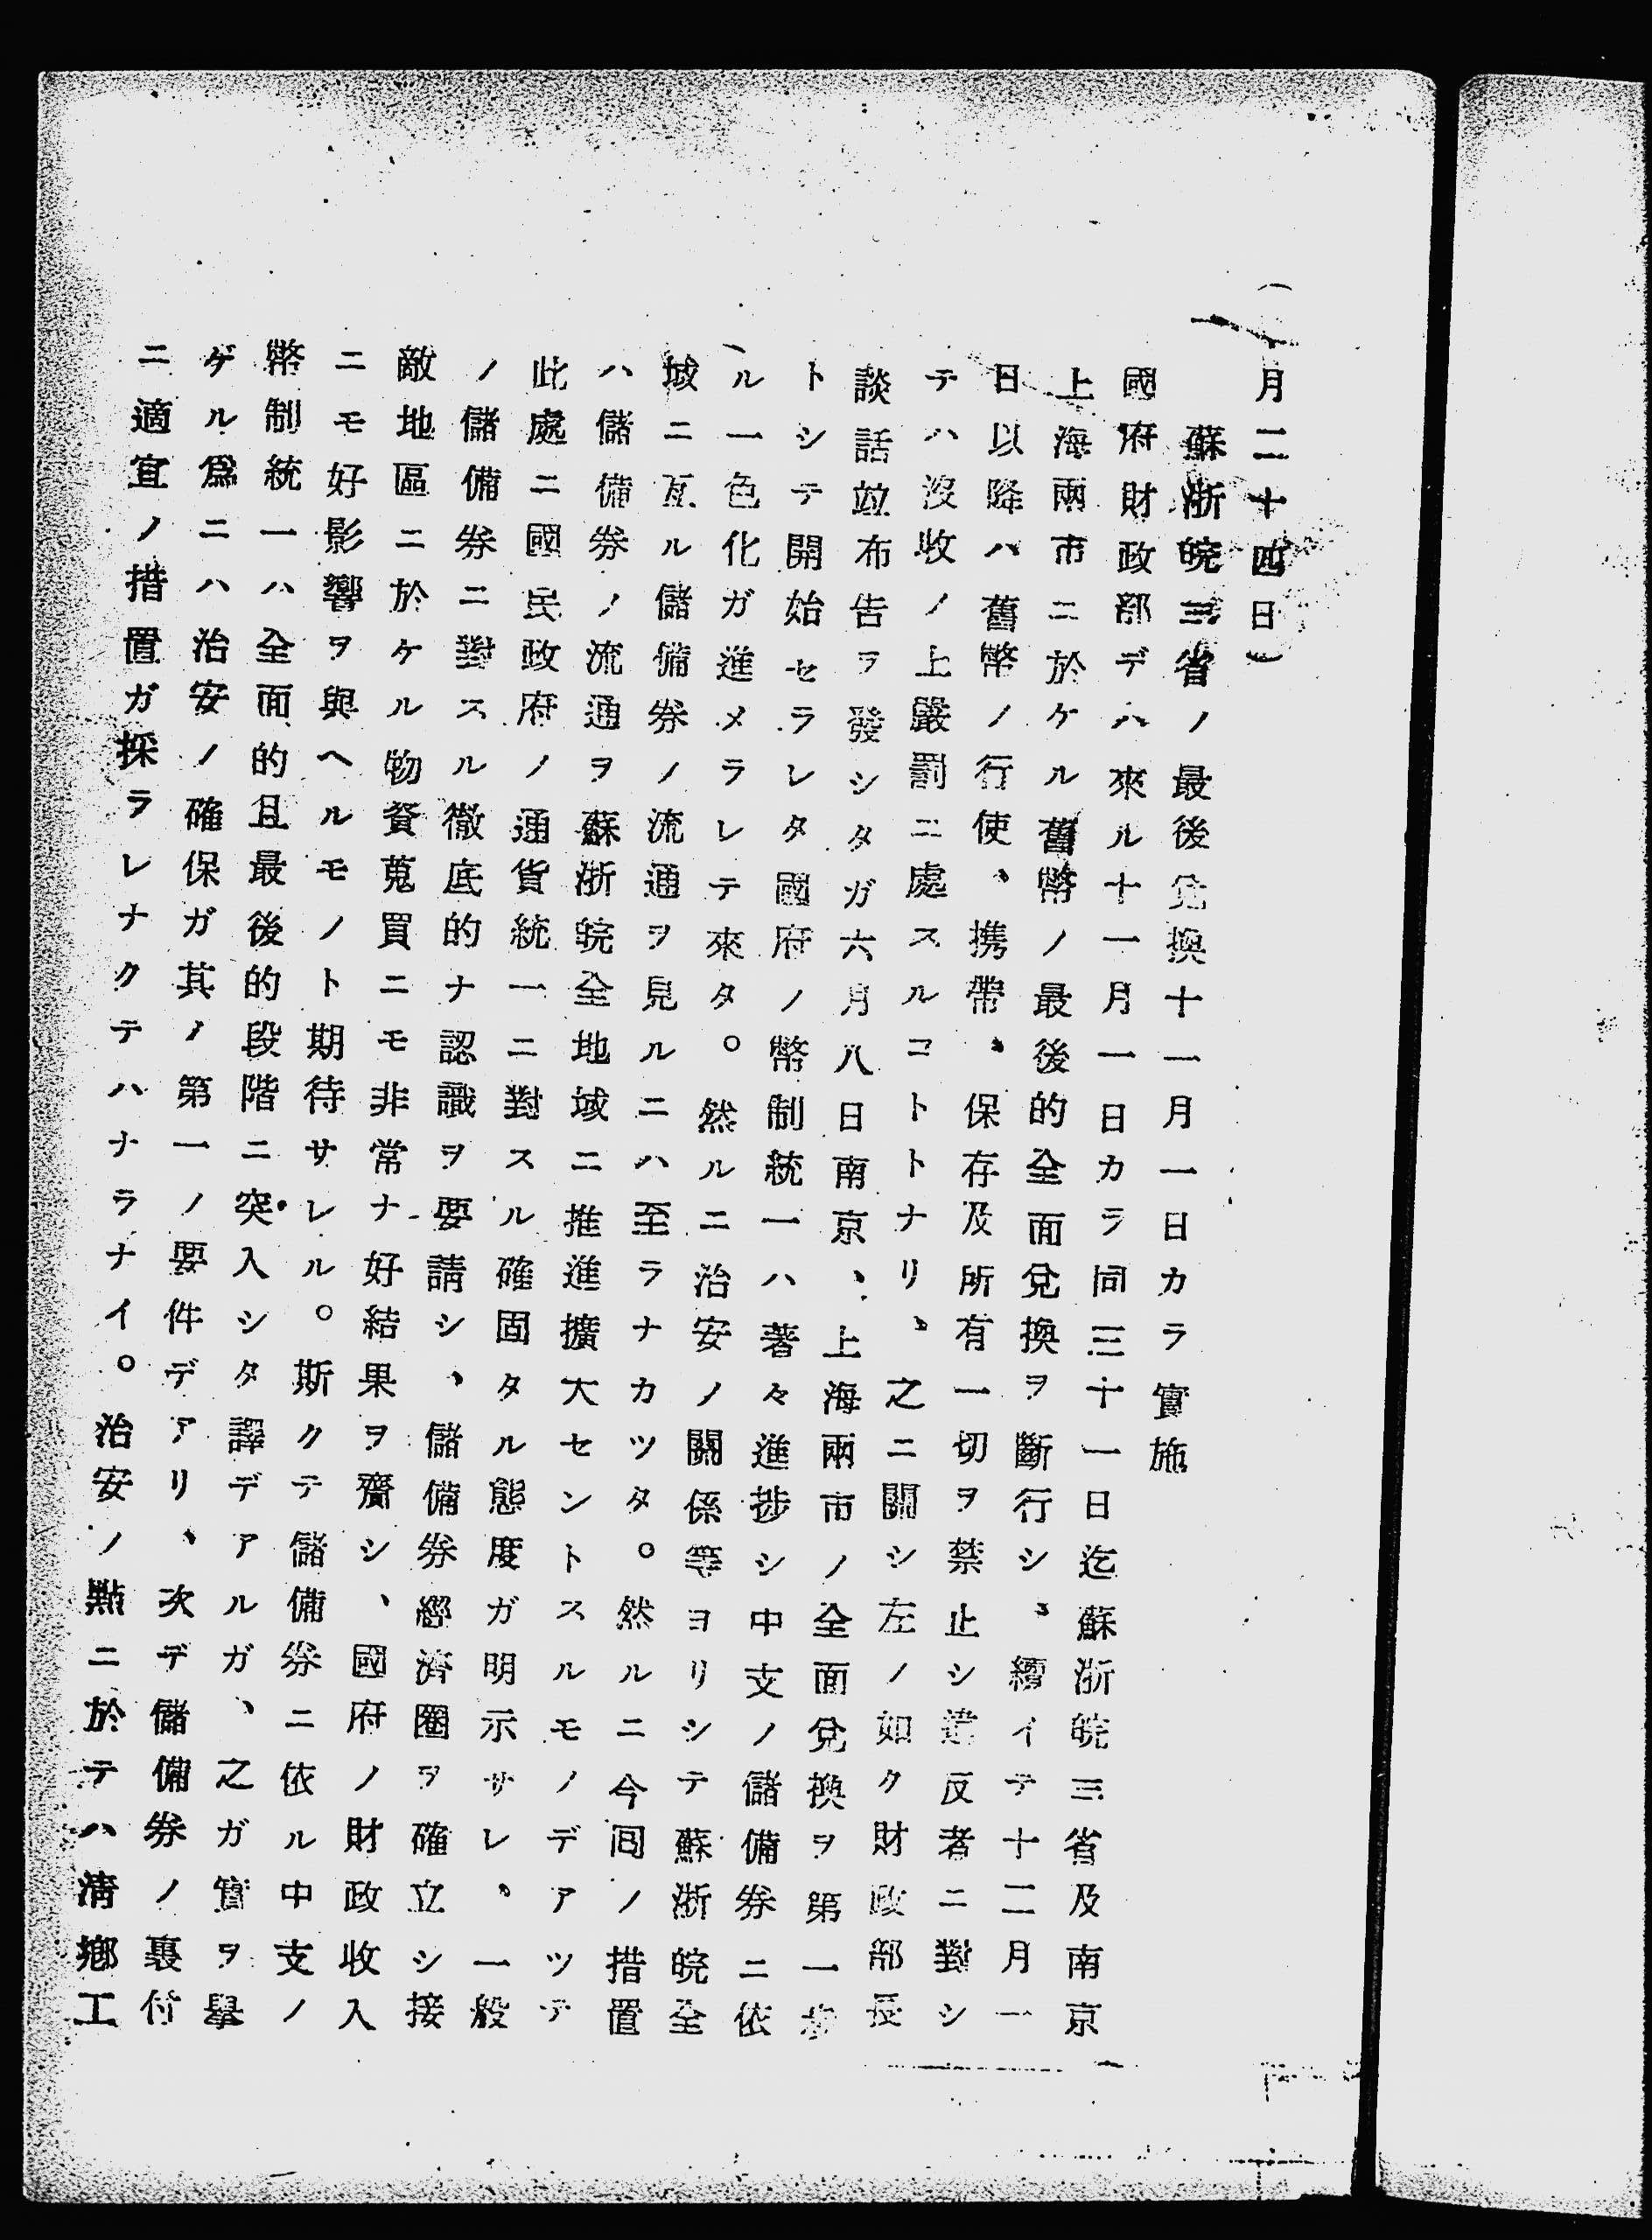 月二十四日)
蘇浙皖三省ノ最後兌換十一月一日カラ實施
國府財政部デハ來ル十一月一日カラ同三十一日迄蘇浙皖三省及南京
上海兩市ニ於ケル舊幣ノ最後的全面兌換ヲ斷行シ、續イテ十二月一
日以降ハ舊幣ノ行使、携帶、保存及所有一切ヲ禁止シ違反者ニ對シ
テハ沒收ノ上嚴罰ニ處スルコトトナリ、之ニ關シ左ノ如ク財政部長
談話竝布告ヲ發シタガ六月八日南京、上海兩市ノ全面兌換ヲ第一步
トシテ開始セラレタ國府ノ幣制統一ハ著々進捗シ中支ノ儲備券ニ依
ル一色化ガ進メラレテ來タ。然ルニ治安ノ關係等ヨリシテ蘇浙皖全
域ニ亙ル儲備券ノ流通ヲ見ルニハ至ラナカツタ。然ルニ今囘ノ措置
ハ儲備券ノ流通ヲ蘇浙皖全地域ニ推進擴大セントスルモノデアツテ
此處ニ國民政府ノ通貨統一ニ對スル確固タル態度ガ明示サレ、一般
ノ儲備券ニ對スル徹底的ナ認識ヲ要請シ、儲備券經濟圈ヲ確立シ接
敵地區ニ於ケル物資蒐買ニモ非常ナ好結果ヲ齎シ、國府ノ財政收入
ニモ好影響ヲ與ヘルモノト期待サレル。斯クテ儲備券ニ依ル中支ノ
幣制統一ハ全面的且最後的段階ニ突入シタ譯デアルガ、之ガ實ヲ擧
ゲル爲ニハ治安ノ確保ガ其ノ第一ノ要件デアリ、次デ儲備券ノ裏付
ニ適宜ノ措置ガ採ラレナクテハナラナイ。治安ノ點ニ於テハ淸鄕工